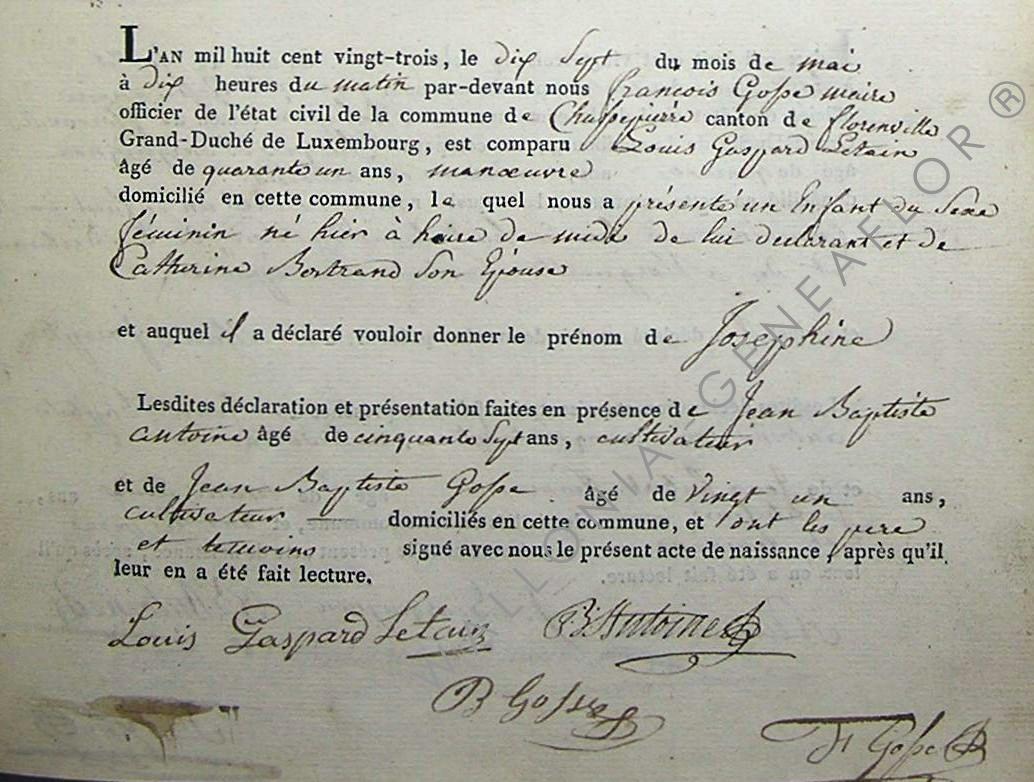 L'AN mil huit cent vingt-trois, le dix Sept du mois de mai
à dix heures du matin par-devant nous François Gosse maire
officier de l'état civil de la commune de Chassepierre canton de florenville
Grand-Duché de Luxembourg, est comparu Louis Gaspard Letain
âgé de quarante un ans, manœuvre
domicilié en cette commune, le quel nous a présenté un Enfant du Sexe
féminin né hier à heure de midi de lui declarant et de
Catherine Bertrand Son Epouse
et auquel il a déclaré vouloir donner le prénom de Josephine
Lesdites déclaration et présentation faites en présence de Jean Baptiste
antoine âgé de cinquante Sept ans, cultivateur
et de Jean Baptiste Gosse âgé de Vingt un ans,
cultivateur — domiciliés en cette commune, et ont les pere
et temoins signé avec nous le présent acte de naissance, après qu'il
leur en a été fait lecture.
Louis Gaspard Letain B Antoine
B Gosse
F Gosse
LOWAGENEAFLOR ®